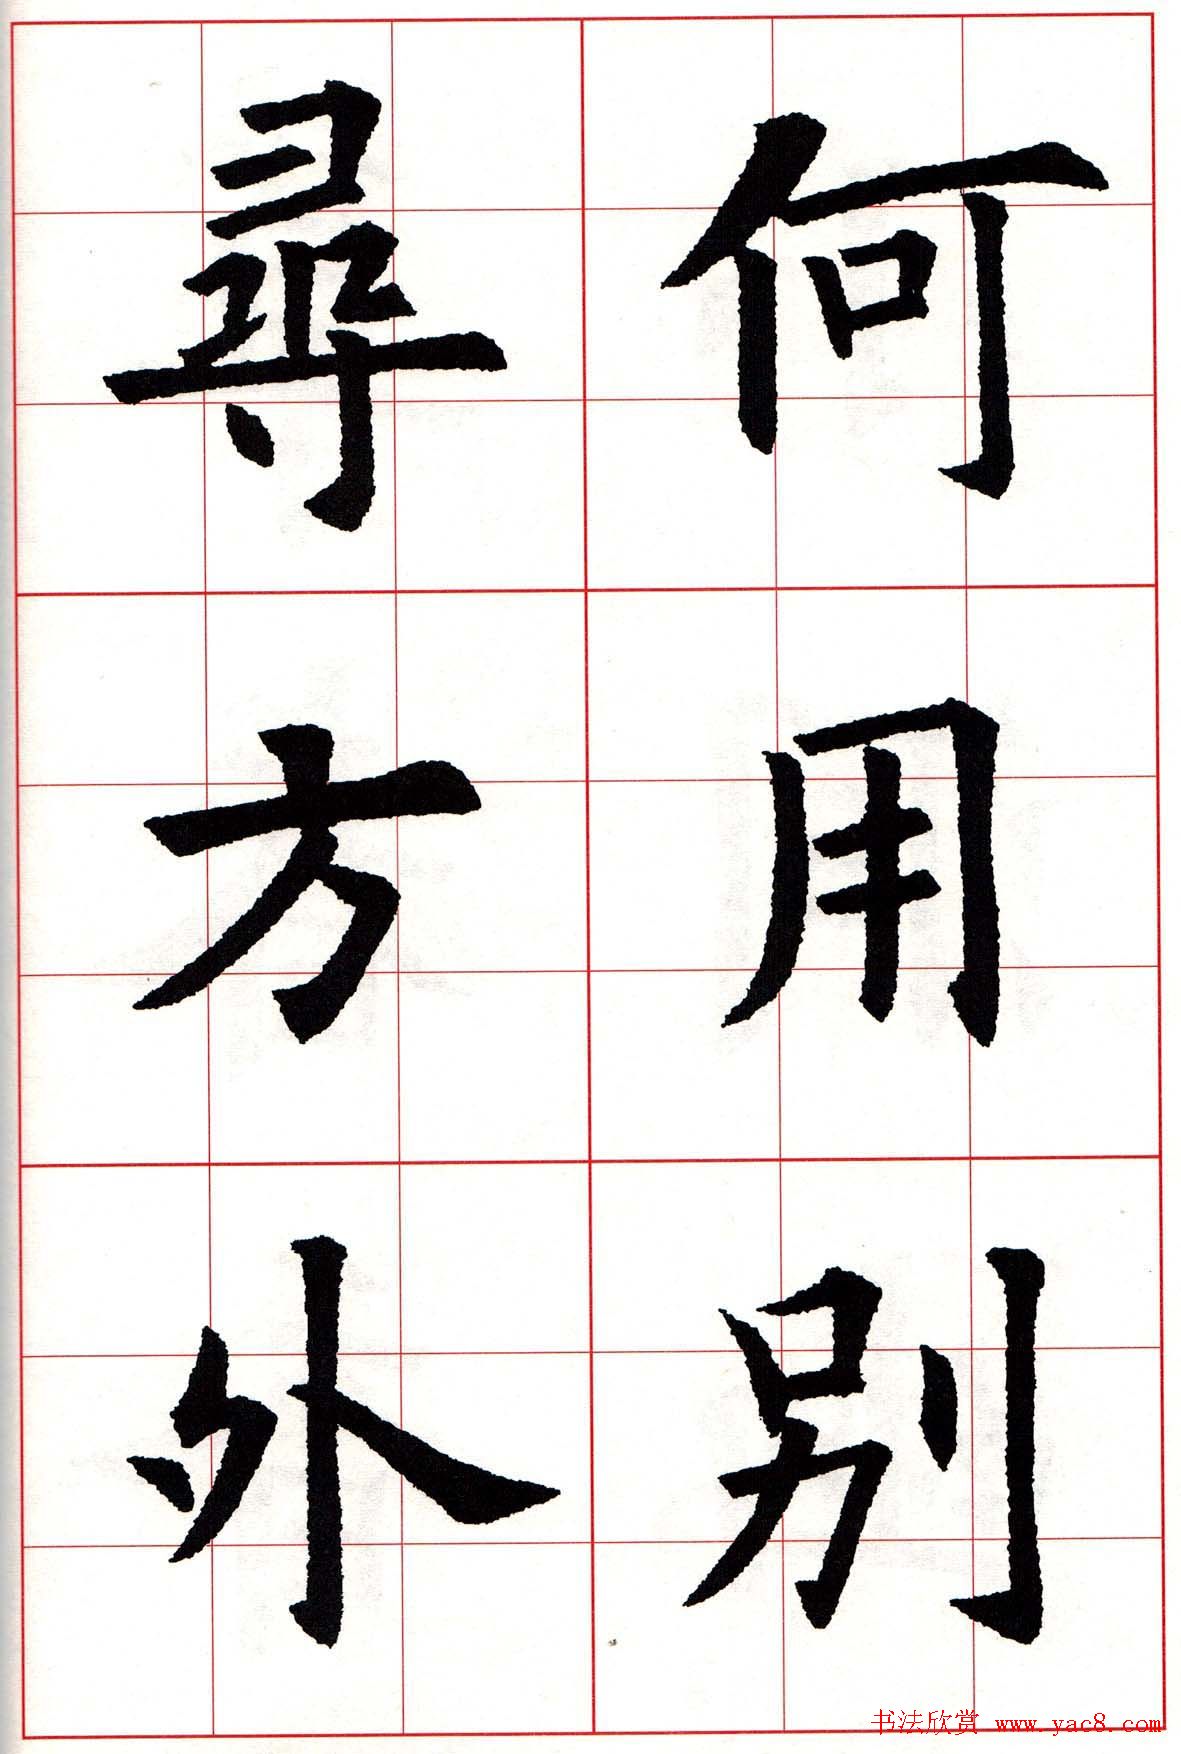 何用别
尋方外
书法欣赏 www.yac8.com